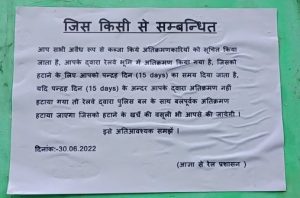 जिस किसी से सम्बन्धित
आप सभी अवैध रूप से कब्जा किये अतिक्रमणकारियों को सूचित किया
जाता है, आपके द्वारा रेलवे भूमि में अतिक्रमण किया गया है, जिसको
हटाने के लिए आपको पन्द्रह दिन (15 days) का समय दिया जाता है,
यदि पन्द्रह दिन (15 days) के अन्दर आपके द्वारा अतिक्रमण नही
हटाया गया तो रेलवे द्वारा पुलिस बल के साथ बलपूर्वक अतिक्रमण
हटाया जाएगा जिसको हटाने के खर्चे की वसूली भी आपसे की जायेगी ।
इसे अतिआवश्यक समझें ।
दिनांक:-30.06.2022
(आज्ञा से रेल प्रशासन )